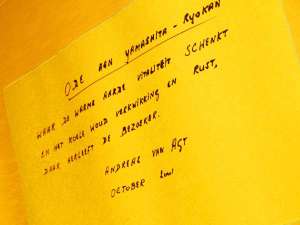 ODE AAN YAMASHITA-RYOKAN
WAAR DE WARME AARDE VITALITEIT SCHENKT
EN HET KOELE WOUD VERKWIKKING EN RUST,
DAAR HERLEEFT DE BEZOEKER.
ANDREAS VAN AGT
OCTOBER 2001